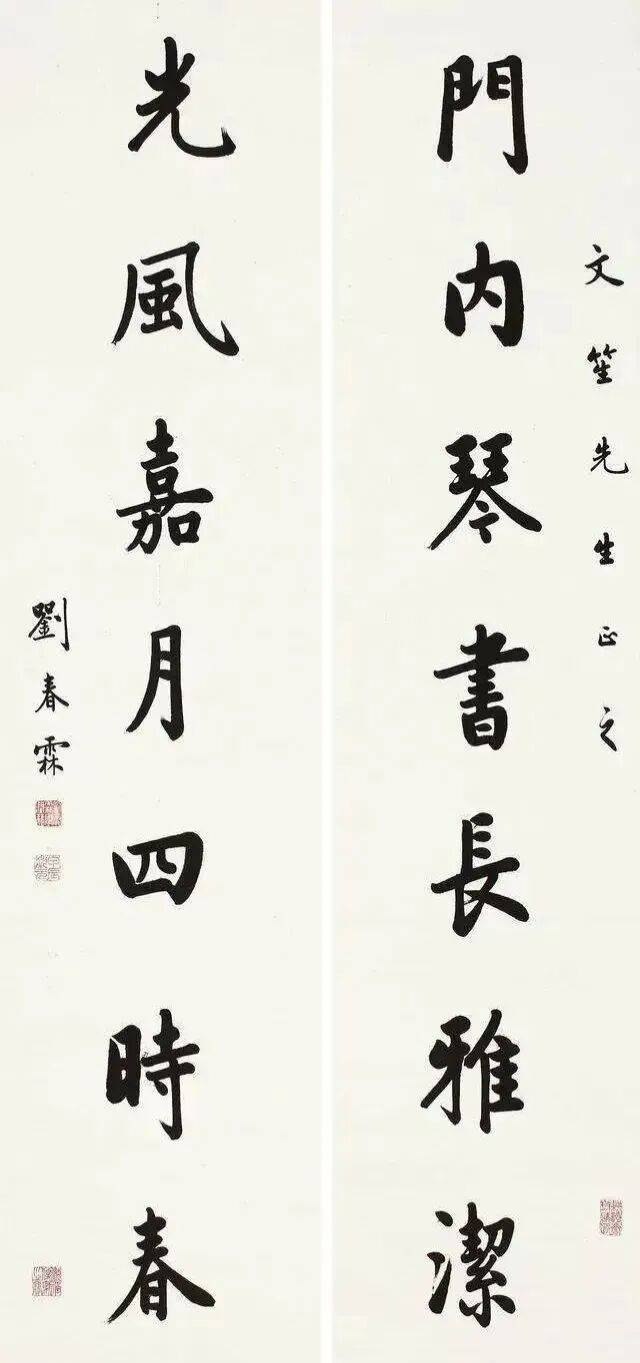 文笙先生正之
門内琴書長雅潔
光風嘉月四時春
劉春霖